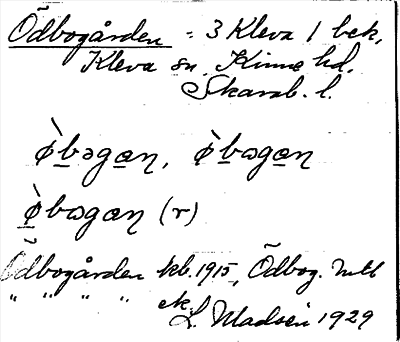 Ödbogården = 3 Kleva 1 bek.
Kleva sn. Kinne hd.
Skarab. l.
ø̀bəgan, ø̀bɷgan
ø̀bɷgan (r)
Ödbogården kb. 1915, Ödbog.
" " " " ek.
L. Madsén 1929